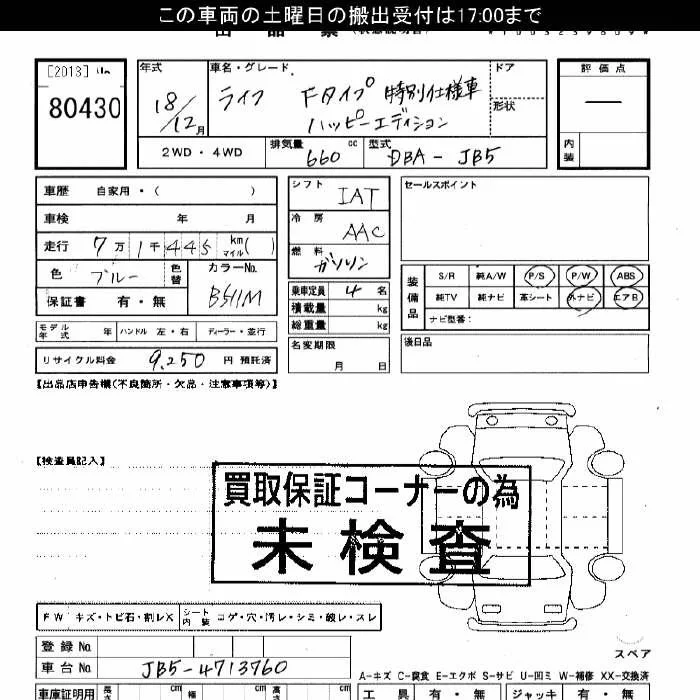 この車両の土曜日の搬出受付は17:00まで
[2013]
80430
年式 18/12月
車名・グレード ライフ Fタイプ 特別仕様車
ハッピーエディション
ドア
形状
評価点
―
内装
2WD・4WD
排気量 660 cc
型式 DBA-JB5
車歴 自家用・( )
車検 年 月
走行 7万1千445 km マイル( )
色 ブルー
色替
カラーNo. B511M
保証書 有・無
シフト IAT
冷房 AAC
燃料 ガソリン
乗車定員 4名
積載量 kg
総重量 kg
モデル年式 年
ハンドル 左・右
ディーラー・並行
リサイクル料金 9,250 円 預託済
名変期限 月 日
セールスポイント
装備品
S/R 純A/W P/S P/W ABS
純TV 純ナビ 革シート 外ナビ エアB
ナビ型番:
後日品
【出品店申告欄(不良箇所・欠品・注意事項等)】
【検査員記入】
買取保証コーナーの為
未検査
FW キズ・トビ石・割レX
シート内装 コゲ・穴・汚レ・シミ・破レ・スレ
スペア
登録No.
車台No. JB5-4713760
A-キズ C-腐食 E-エクボ S-サビ U-凹ミ W-補修 XX-交換済
車庫証明用 長さ cm 幅 cm 高さ cm
工具 有・無 ジャッキ 有・無